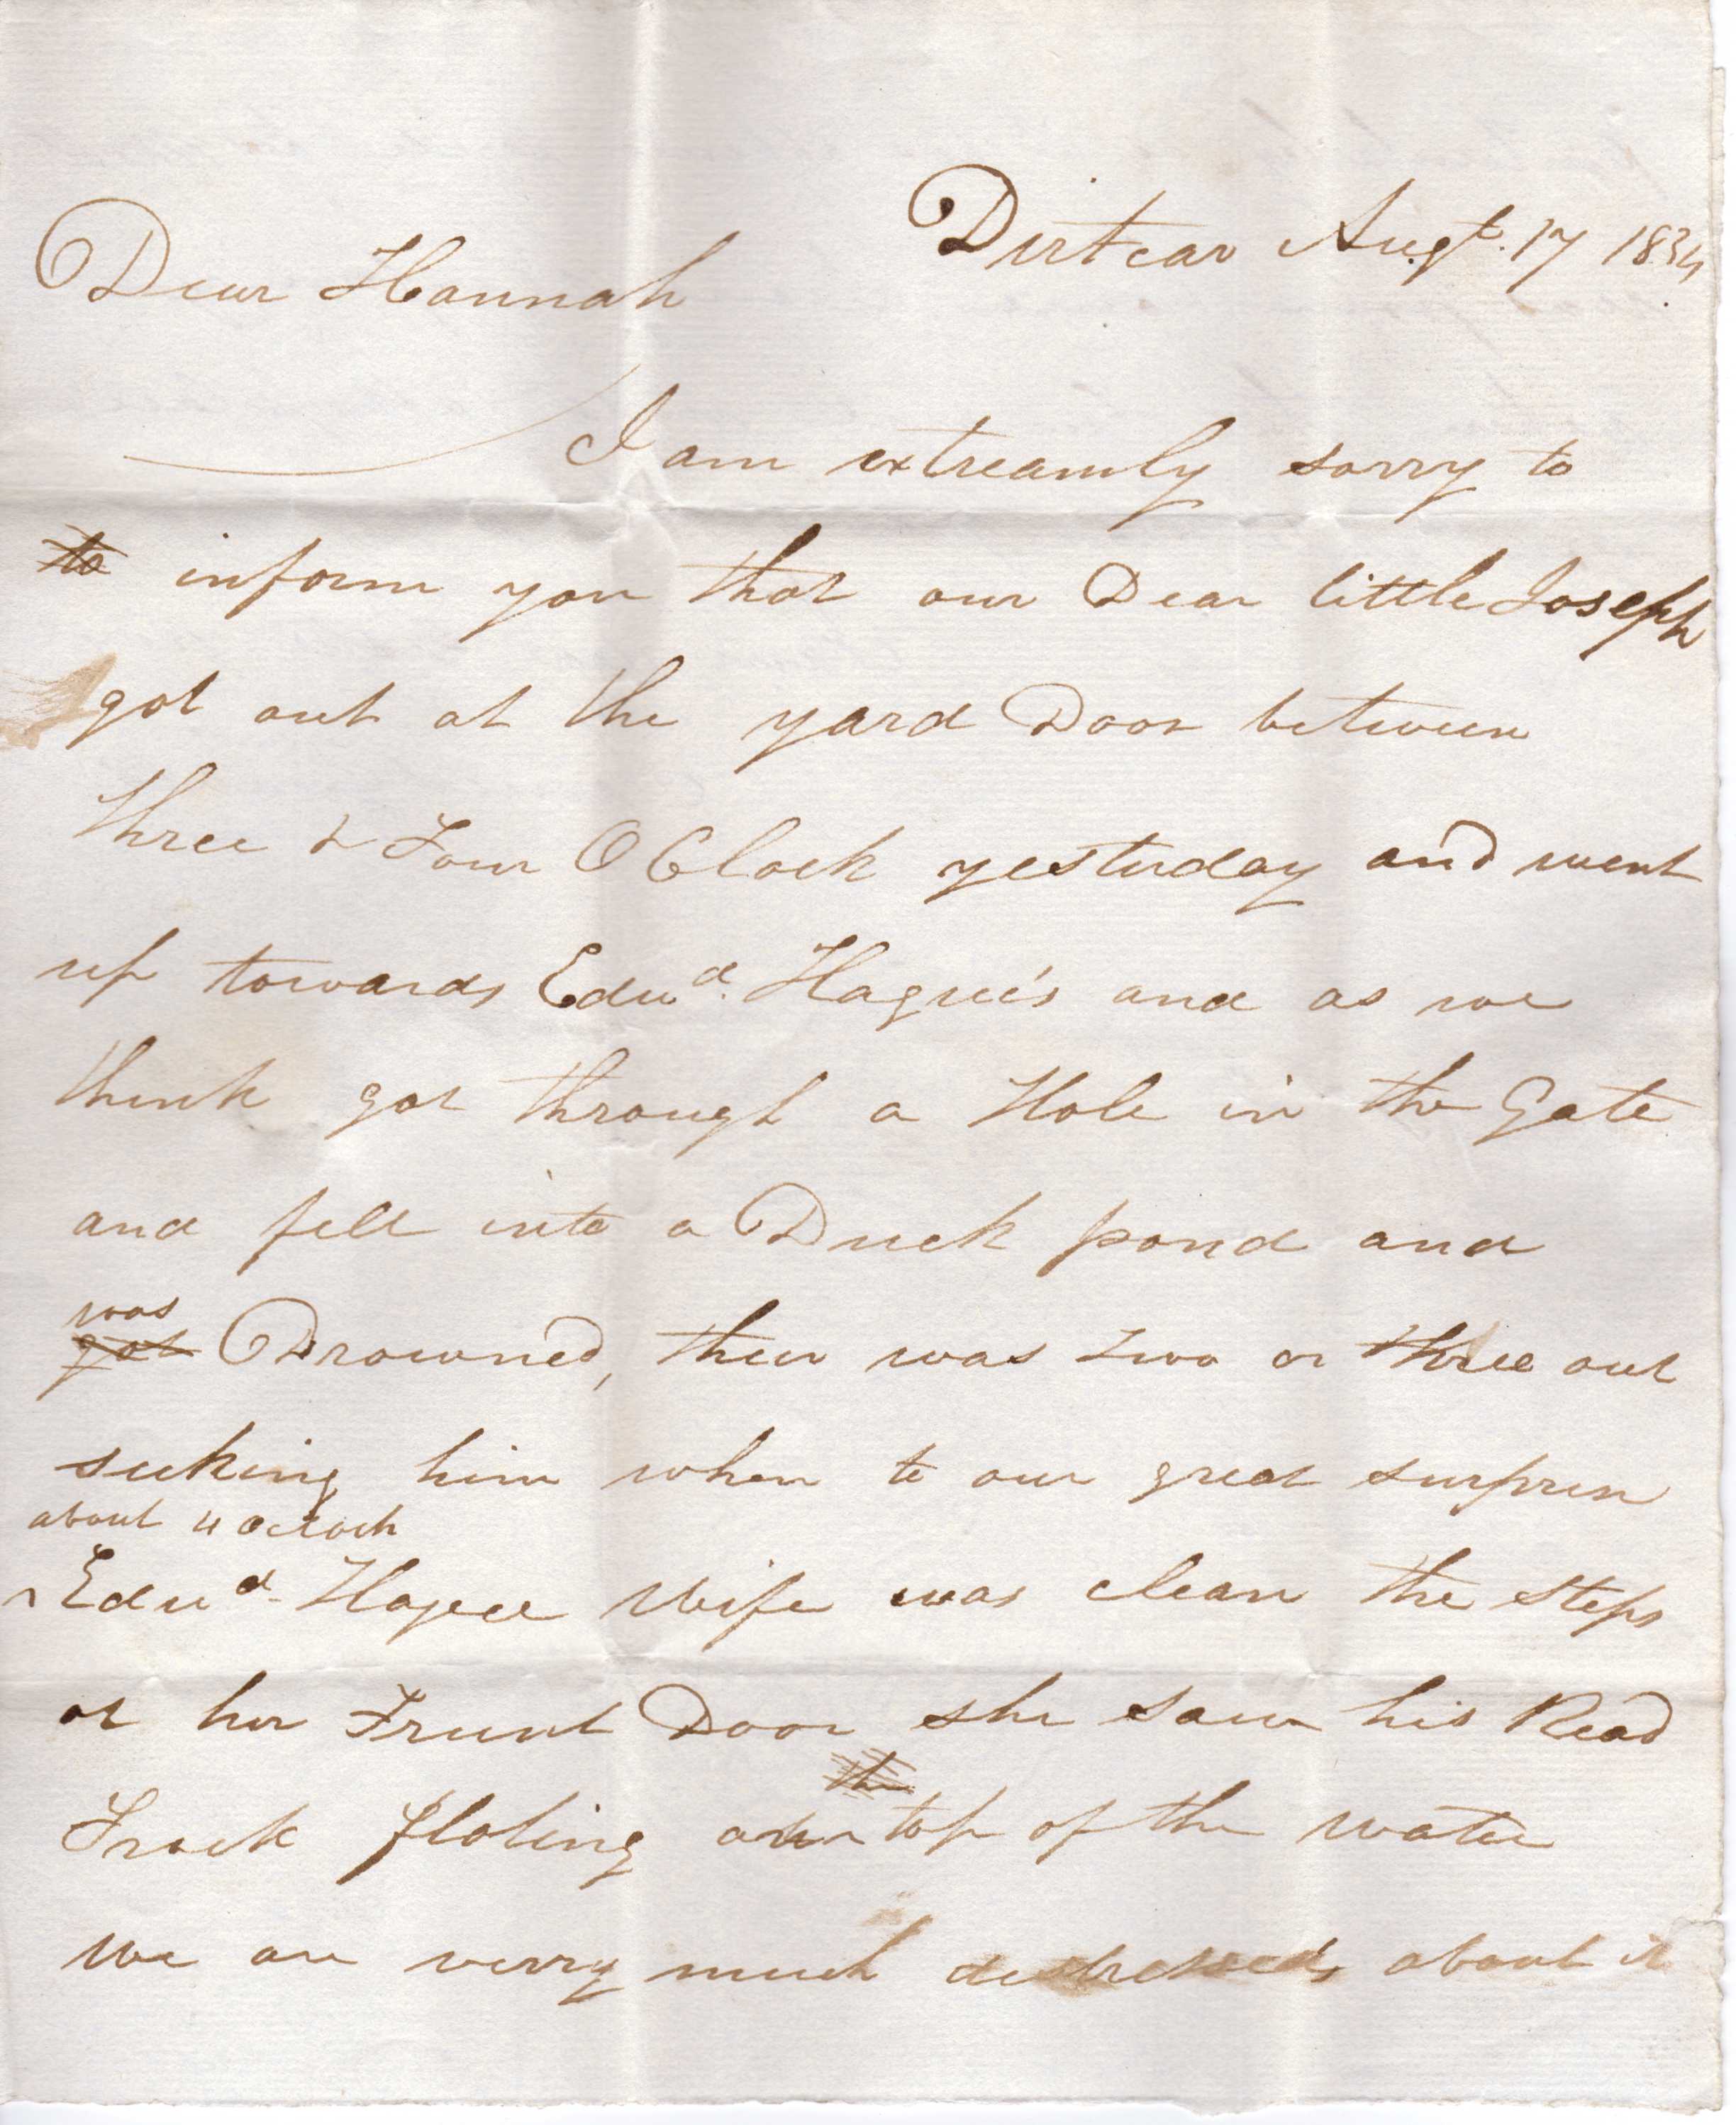 Dirtcar Augt. 17 1834
Dear Hannah
I am extreamly sorry to
to inform you that our Dear little Joseph
got out at the yard Door between
three & Four O Clock yesterday and went
up towards Edwd. Hague's and as we
think got through a Hole in the Gate
and fell into a Duck pond and
was
got Drowned, their was two or three out
seeking him when to our great surprise
about 4 oclock
Edwd. Hague Wife was clean the Steps
at her Frunt Door she saw his Read
the
Frock floting on top of the water
We are verry much distressed about it